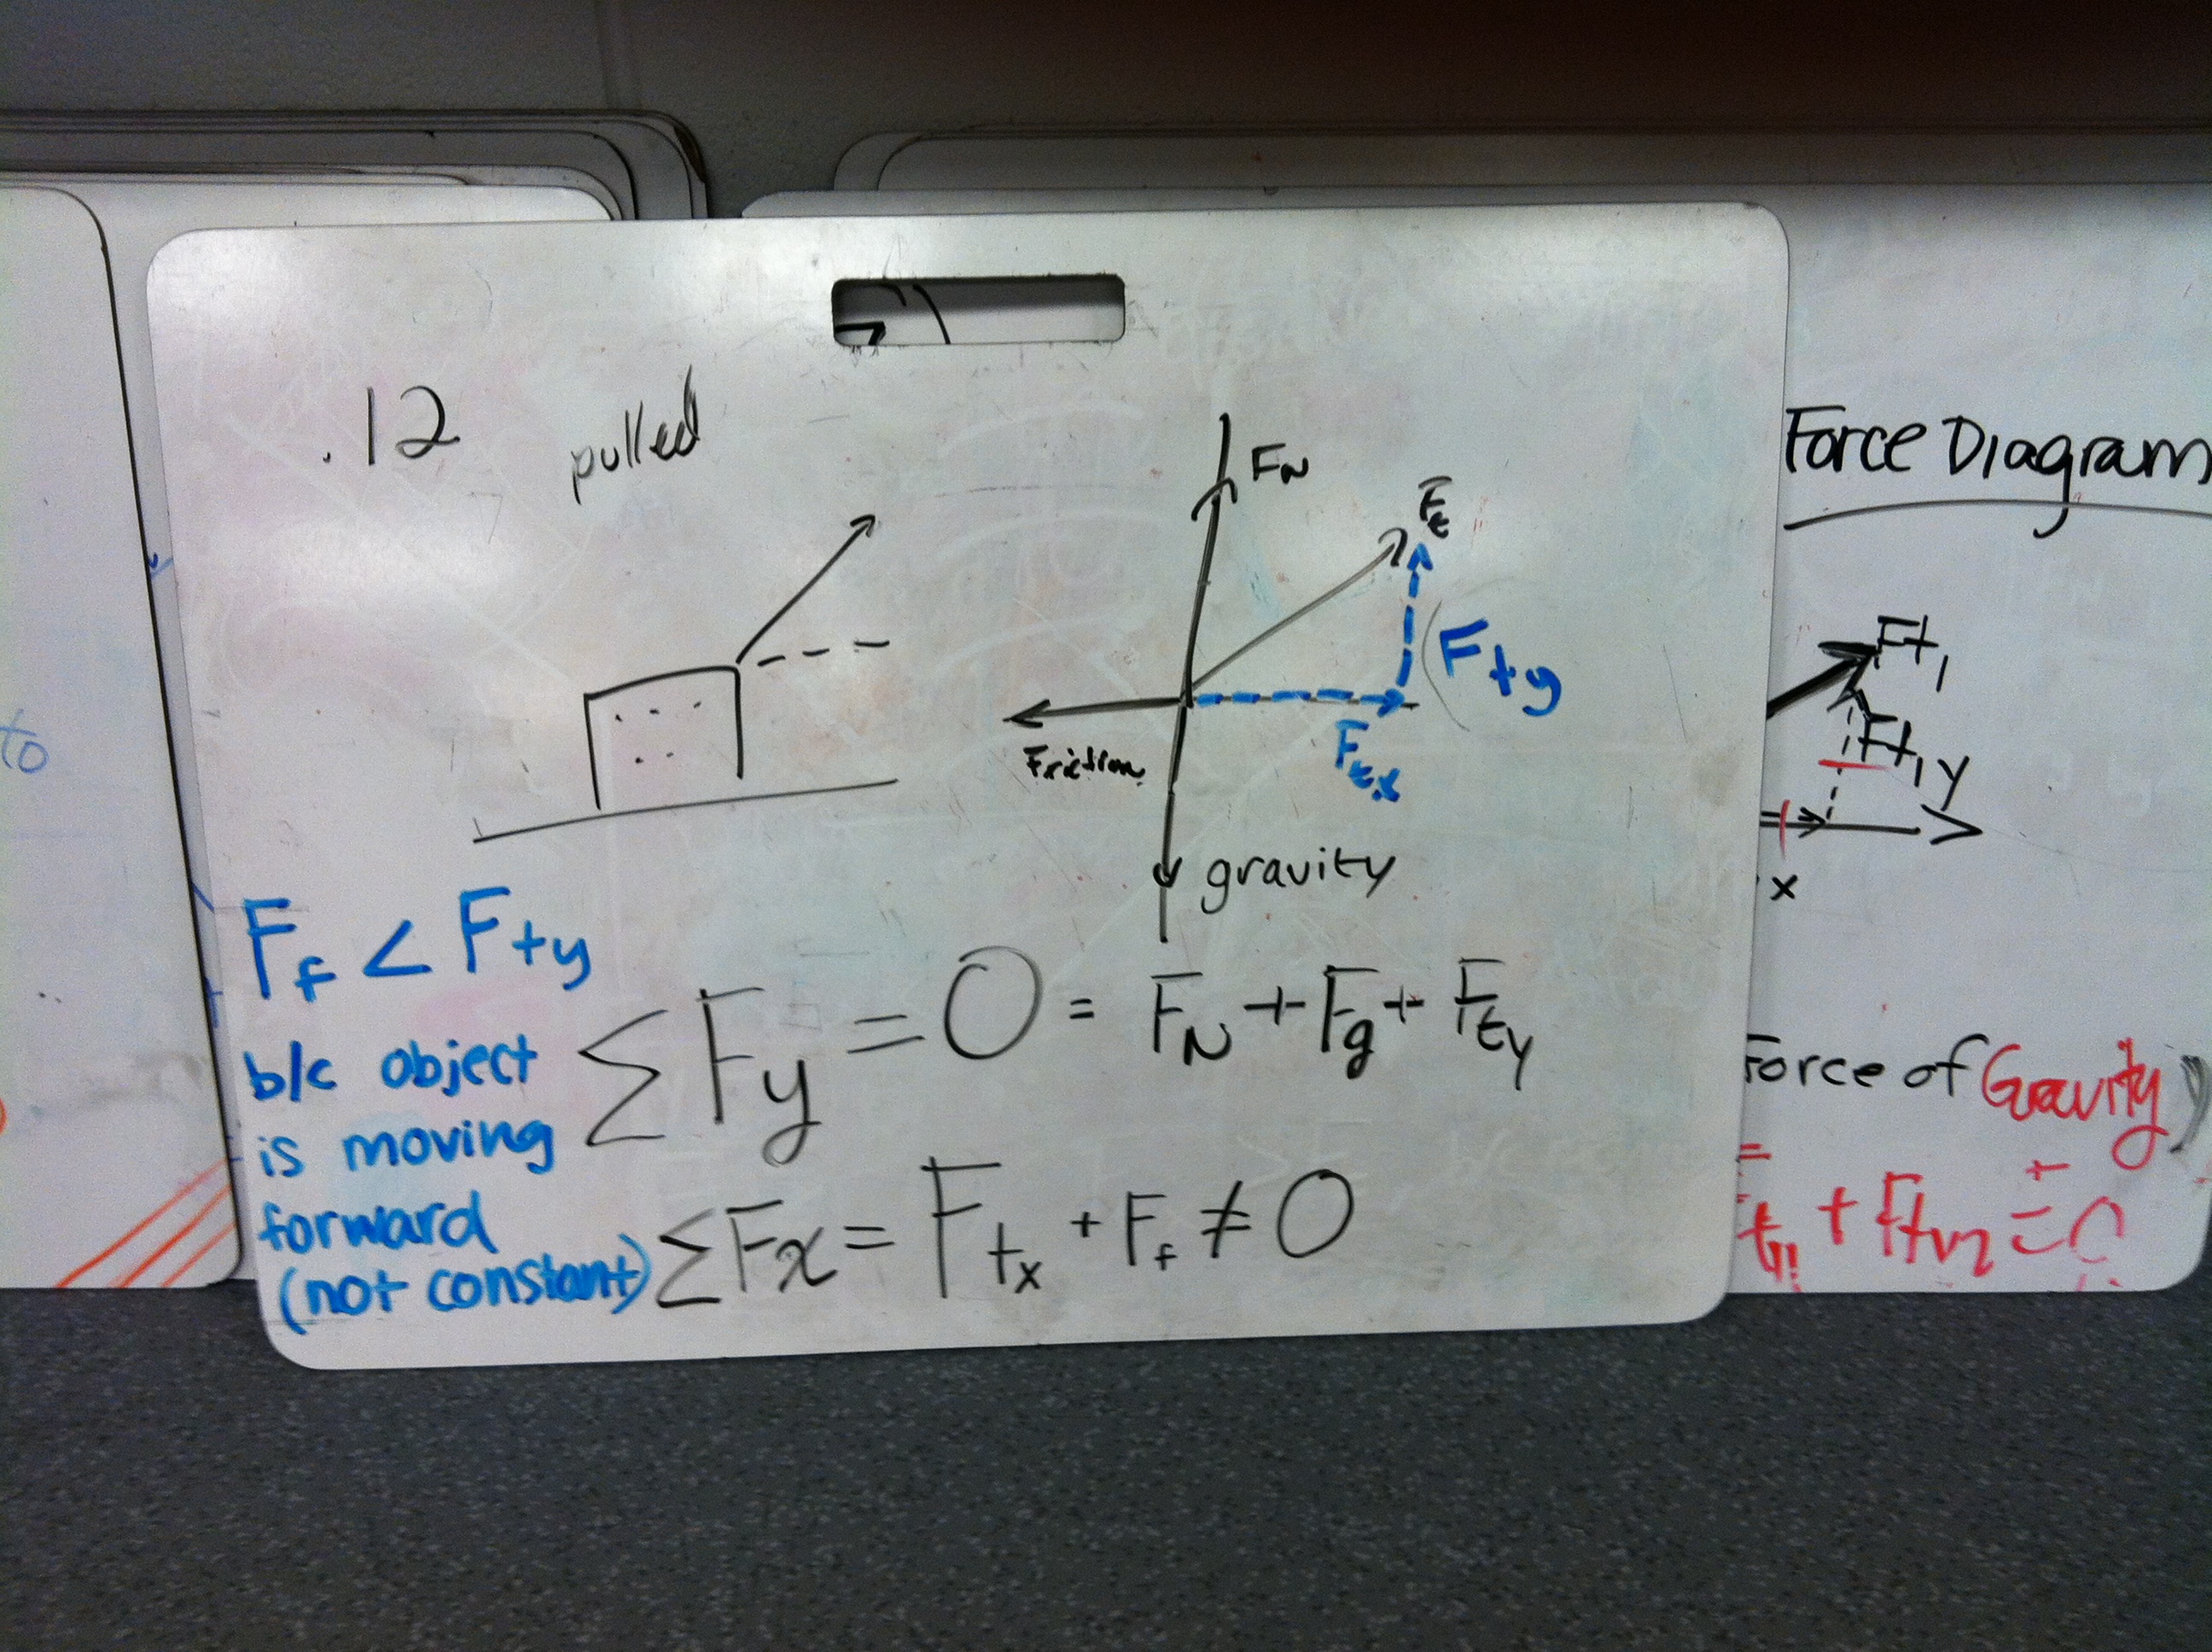 .12
pulled
FN
Ft
Fty
Ftx
Friction
gravity
Ff < Fty
b/c object
is moving
forward
(not constant)
ΣFy = 0 = FN + Fg + Fty
ΣFx = Ftx + Ff ≠ 0
to
Force Diagram
Ft1
Ft1y
x
Force of Gravity